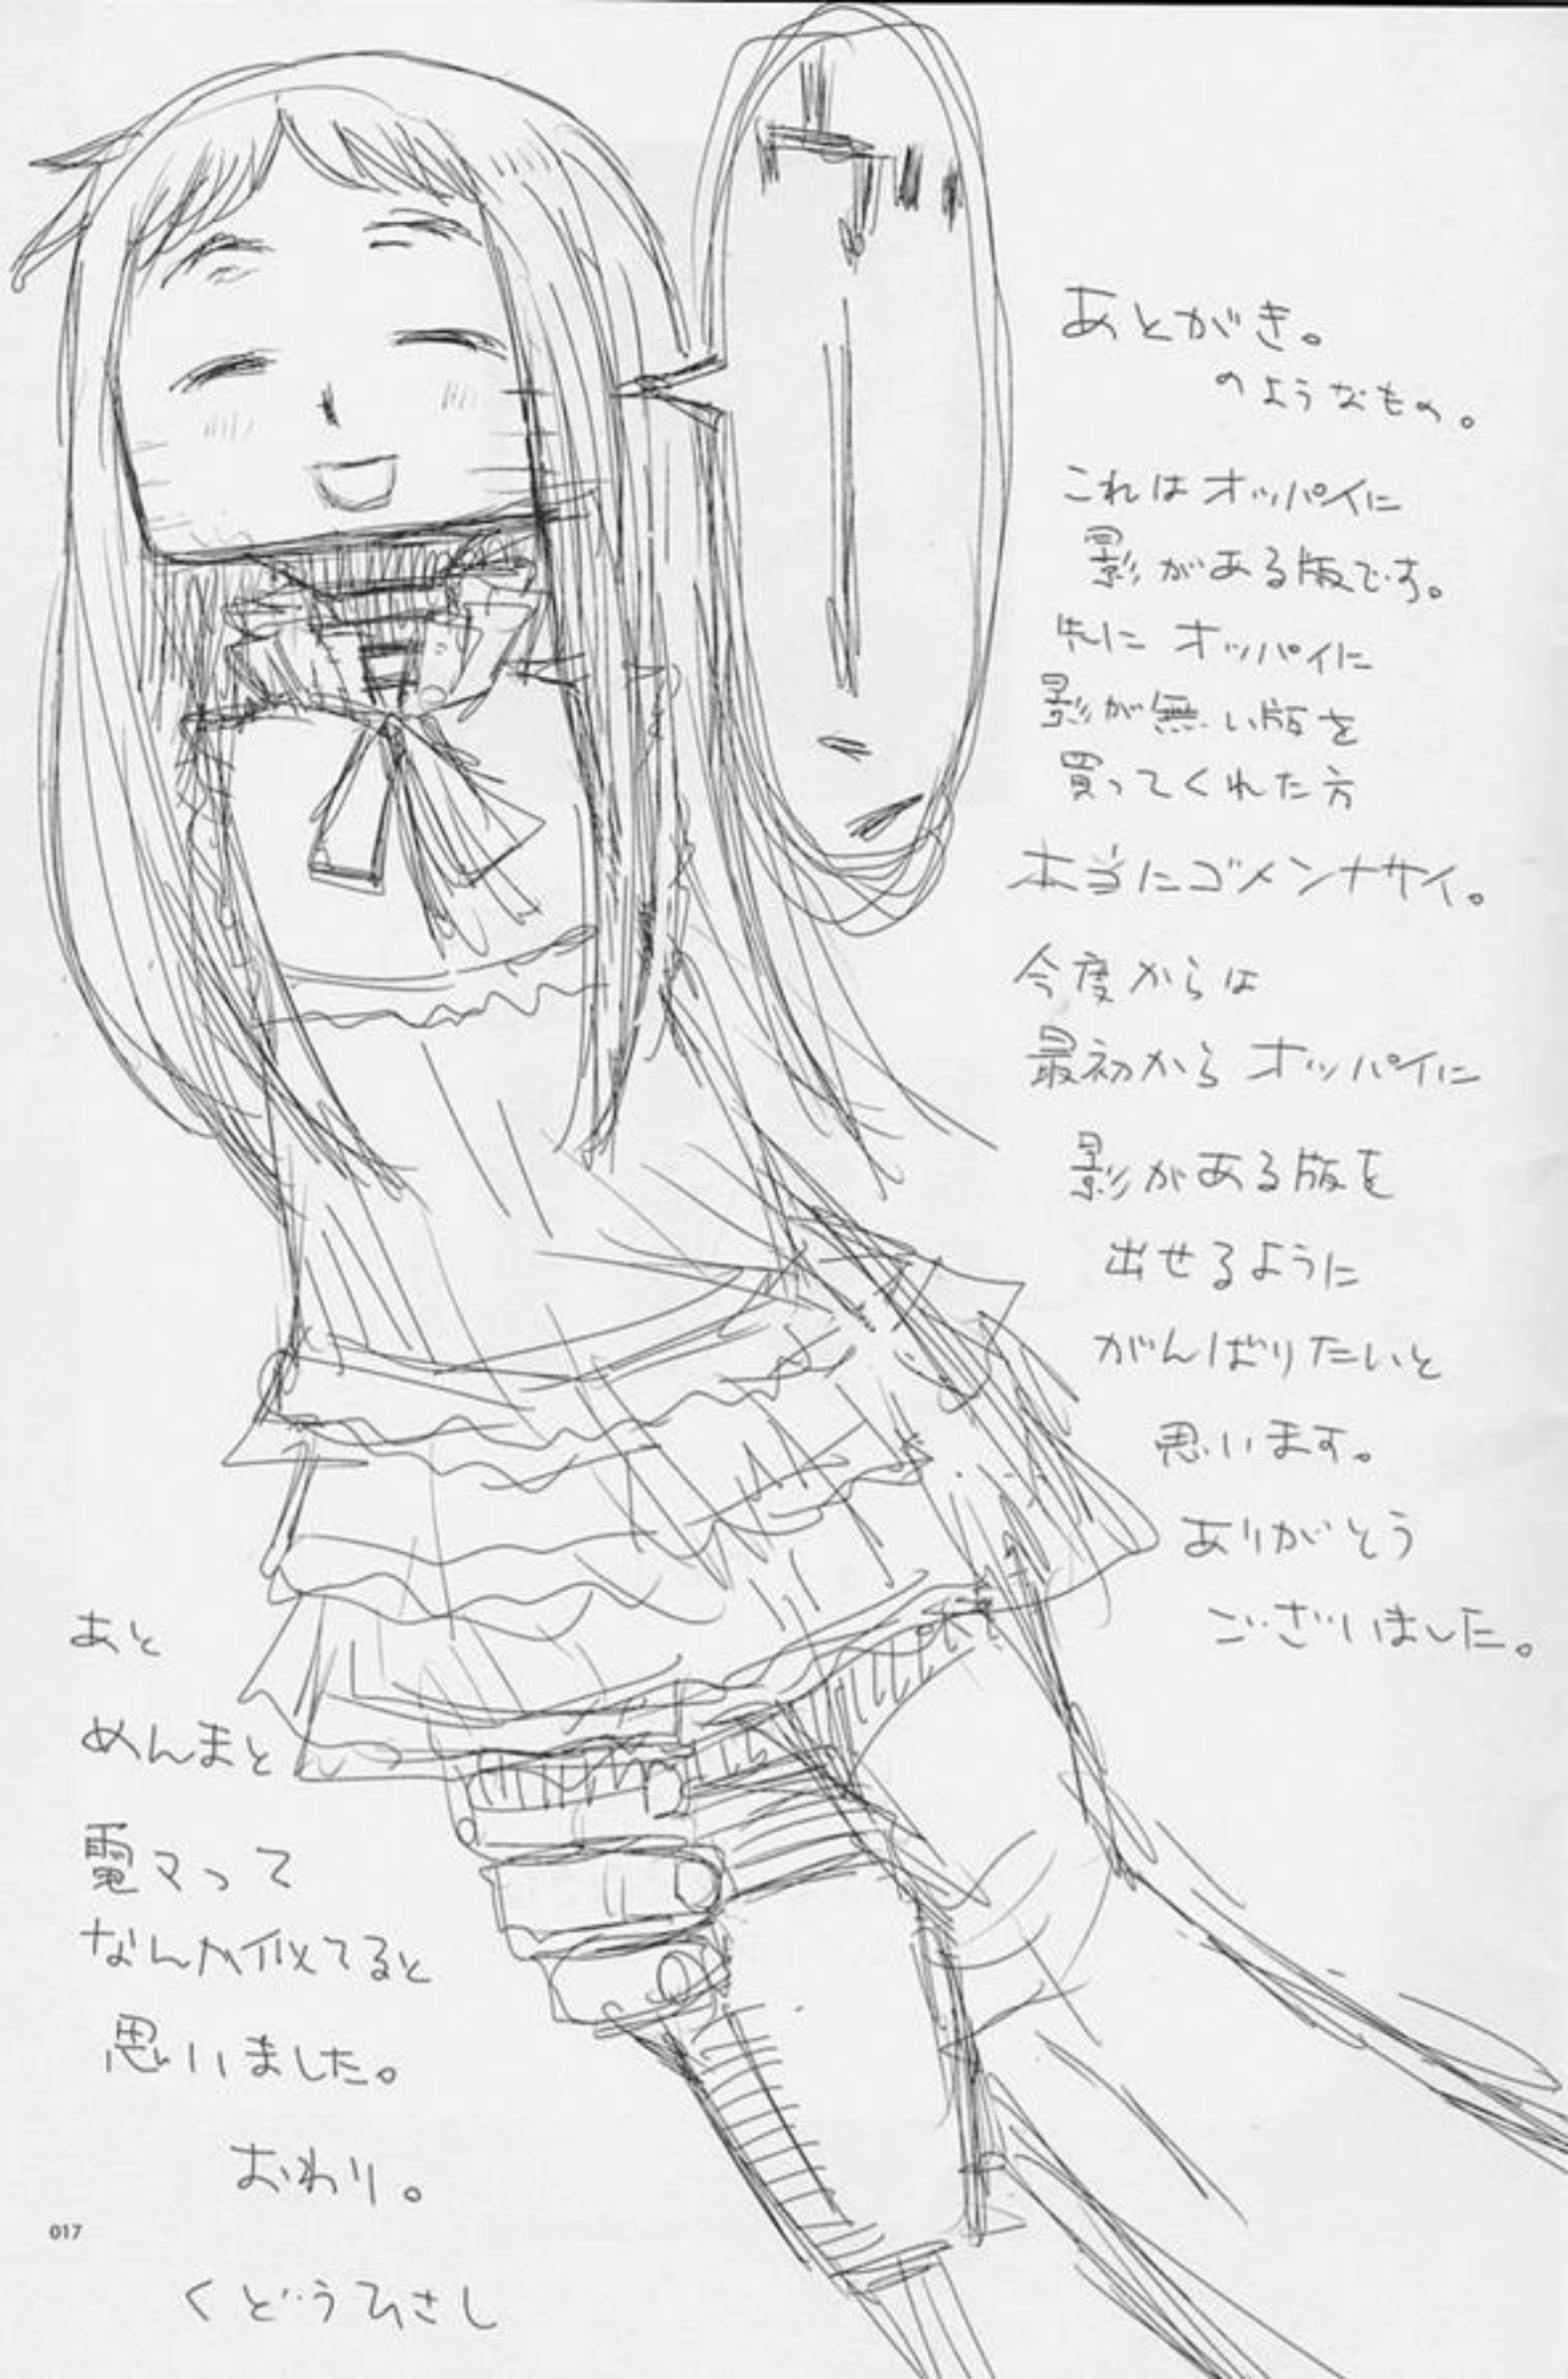 あとがき。
のようなもの。
これはオッパイに
影がある版です。
先にオッパイに
影が無い版を
買ってくれた方
本当にゴメンナサイ。
今度からは
最初からオッパイに
影がある版を
出せるように
がんばりたいと
思います。
ありがとう
ございました。
あと
めんまと
電マって
なんか似てると
思いました。
おわり。
くどうひさし
017